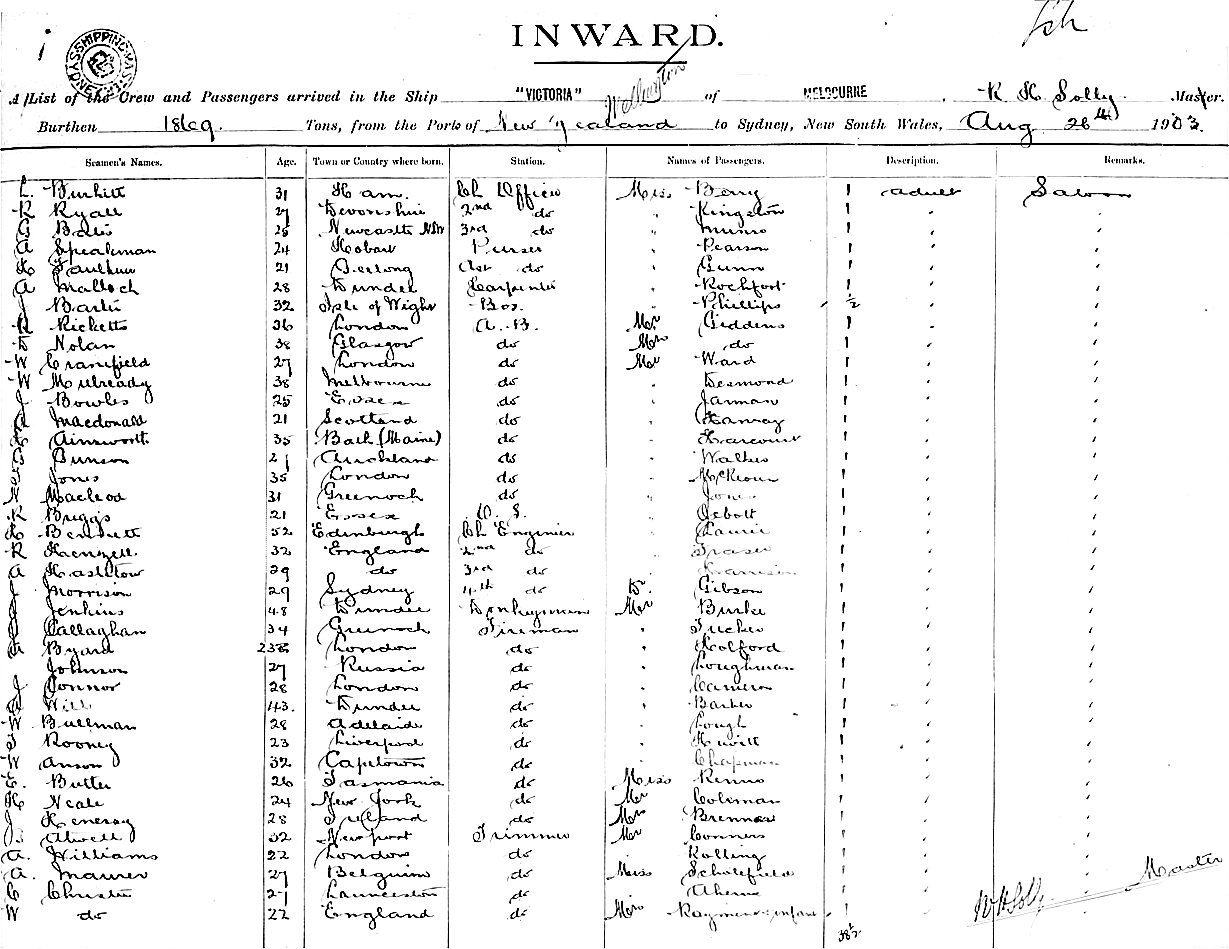 INWARD.
A List of the Crew and Passengers arrived in the Ship "VICTORIA" of MELBOURNE R H Solly Master.
Wellington
Burthen 1869. Tons, from the Ports of New Zealand to Sydney, New South Wales, Aug 26th 1903.
Seamen's Names. Age. Town or Country where born. Station. Names of Passengers. Description. Remarks.
31 Ham. Ch Officer Miss Berry 1 adult Saloon
R Ryall 27 Devonshire 2nd do " Kingston 1 " "
Newcastle NSW 3rd do " Munro 1 " "
A Speakman 24 Hobart Purser " Pearson 1 " "
21 Geelong Asst do " Gunn 1 " "
A Malloch 28 Dundee Carpenter " Rochfort 1 " "
J 32 Isle of Wight Bos. " Phillips 1/2 " "
R Ricketts 36 London A.B. Mr Giddens 1 " "
D Nolan 38 Glasgow do Mrs do 1 " "
W Cranefield 27 London do Mr Ward 1 " "
W Mulready 38 Melbourne do " Desmond 1 " "
J Bowles 25 Essex do " Jarman 1 " "
Macdonald 21 Scotland do " 1 " "
Ainsworth 35 Bath (Maine) do " Harcourt 1 " "
Bunson 21 Auckland do " Walker 1 " "
Jones 35 London do " McKeown 1 " "
Macleod 31 Greenoch do " Jones 1 " "
R Briggs 21 Essex O.S. " 1 " "
Bennett 52 Edinburgh Ch Engineer " Laurie 1 " "
R 32 England 2nd do " Fraser 1 " "
A 29 do 3rd do " Harrison 1 " "
Morrison 29 Sydney 4th do Dr Gibson 1 " "
Jenkins 48 Dundee Donkeyman Mr Burke 1 " "
Callaghan 34 Greenoch Fireman " Tucker 1 " "
A Byard London do " Holford 1 " "
Johnson 27 Russia do " Loughman 1 " "
J Connor 28 London do " Cameron 1 " "
Will 43. Dundee do " Barker 1 " "
W Bullman 28 Adelaide do " Lough 1 " "
Rooney 23 Liverpool do " Hewitt 1 " "
W Anson 32 Capetown do " Chapman 1 " "
E. Butler 26 Tasmania do Miss Renno 1 " "
H Neale 24 New York do Mr Coleman 1 " "
J Henessy 28 Ireland do Mrs Brennan 1 " "
Atwell 32 Newport Trimmer Mr Conners 1 " "
A. Williams 22 London do " Rolling 1 " "
A. Maurer 27 Belguim do Miss Scholefield 1 " "
C Christie 21 Launceston do " Aherne 1 "
W do 22 England do Mrs infant 1
38 1/2
R H Solly Master